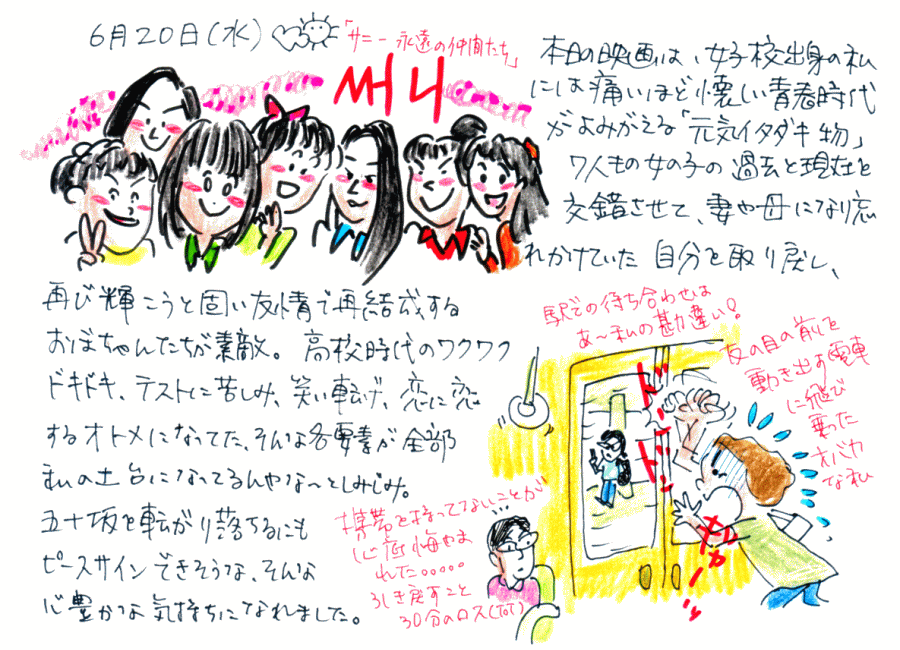 6月20日(水)
「サニー 永遠の仲間たち」
써니
本日の映画は、女子校出身の私
には痛いほど懐しい青春時代
がよみがえる「元気イタダキ物」
7人もの女の子の過去と現在を
交錯させて、妻や母になり忘
れかけていた 自分を取り戻し、
再び輝こうと固い友情で再結成する
おばちゃんたちが素敵。高校時代のワクワク
ドキドキ、テストに苦しみ、笑い転げ、恋に恋
するオトメになってた、そんな各要素が全部
私の土台になってるんやな〜としみじみ。
五十坂を転がり落ちるにも
ピースサインできそうな、そんな
心豊かな気持ちになれました。
駅での待ち合わせは
あ〜私の勘違い!
友の目の前を
動き出す電車
に飛び
乗った
オバカ
な私
ドンドン
携帯を持ってないことが
心底悔やま
れた。。。。。
引き戻すこと
30分のロス(ToT)